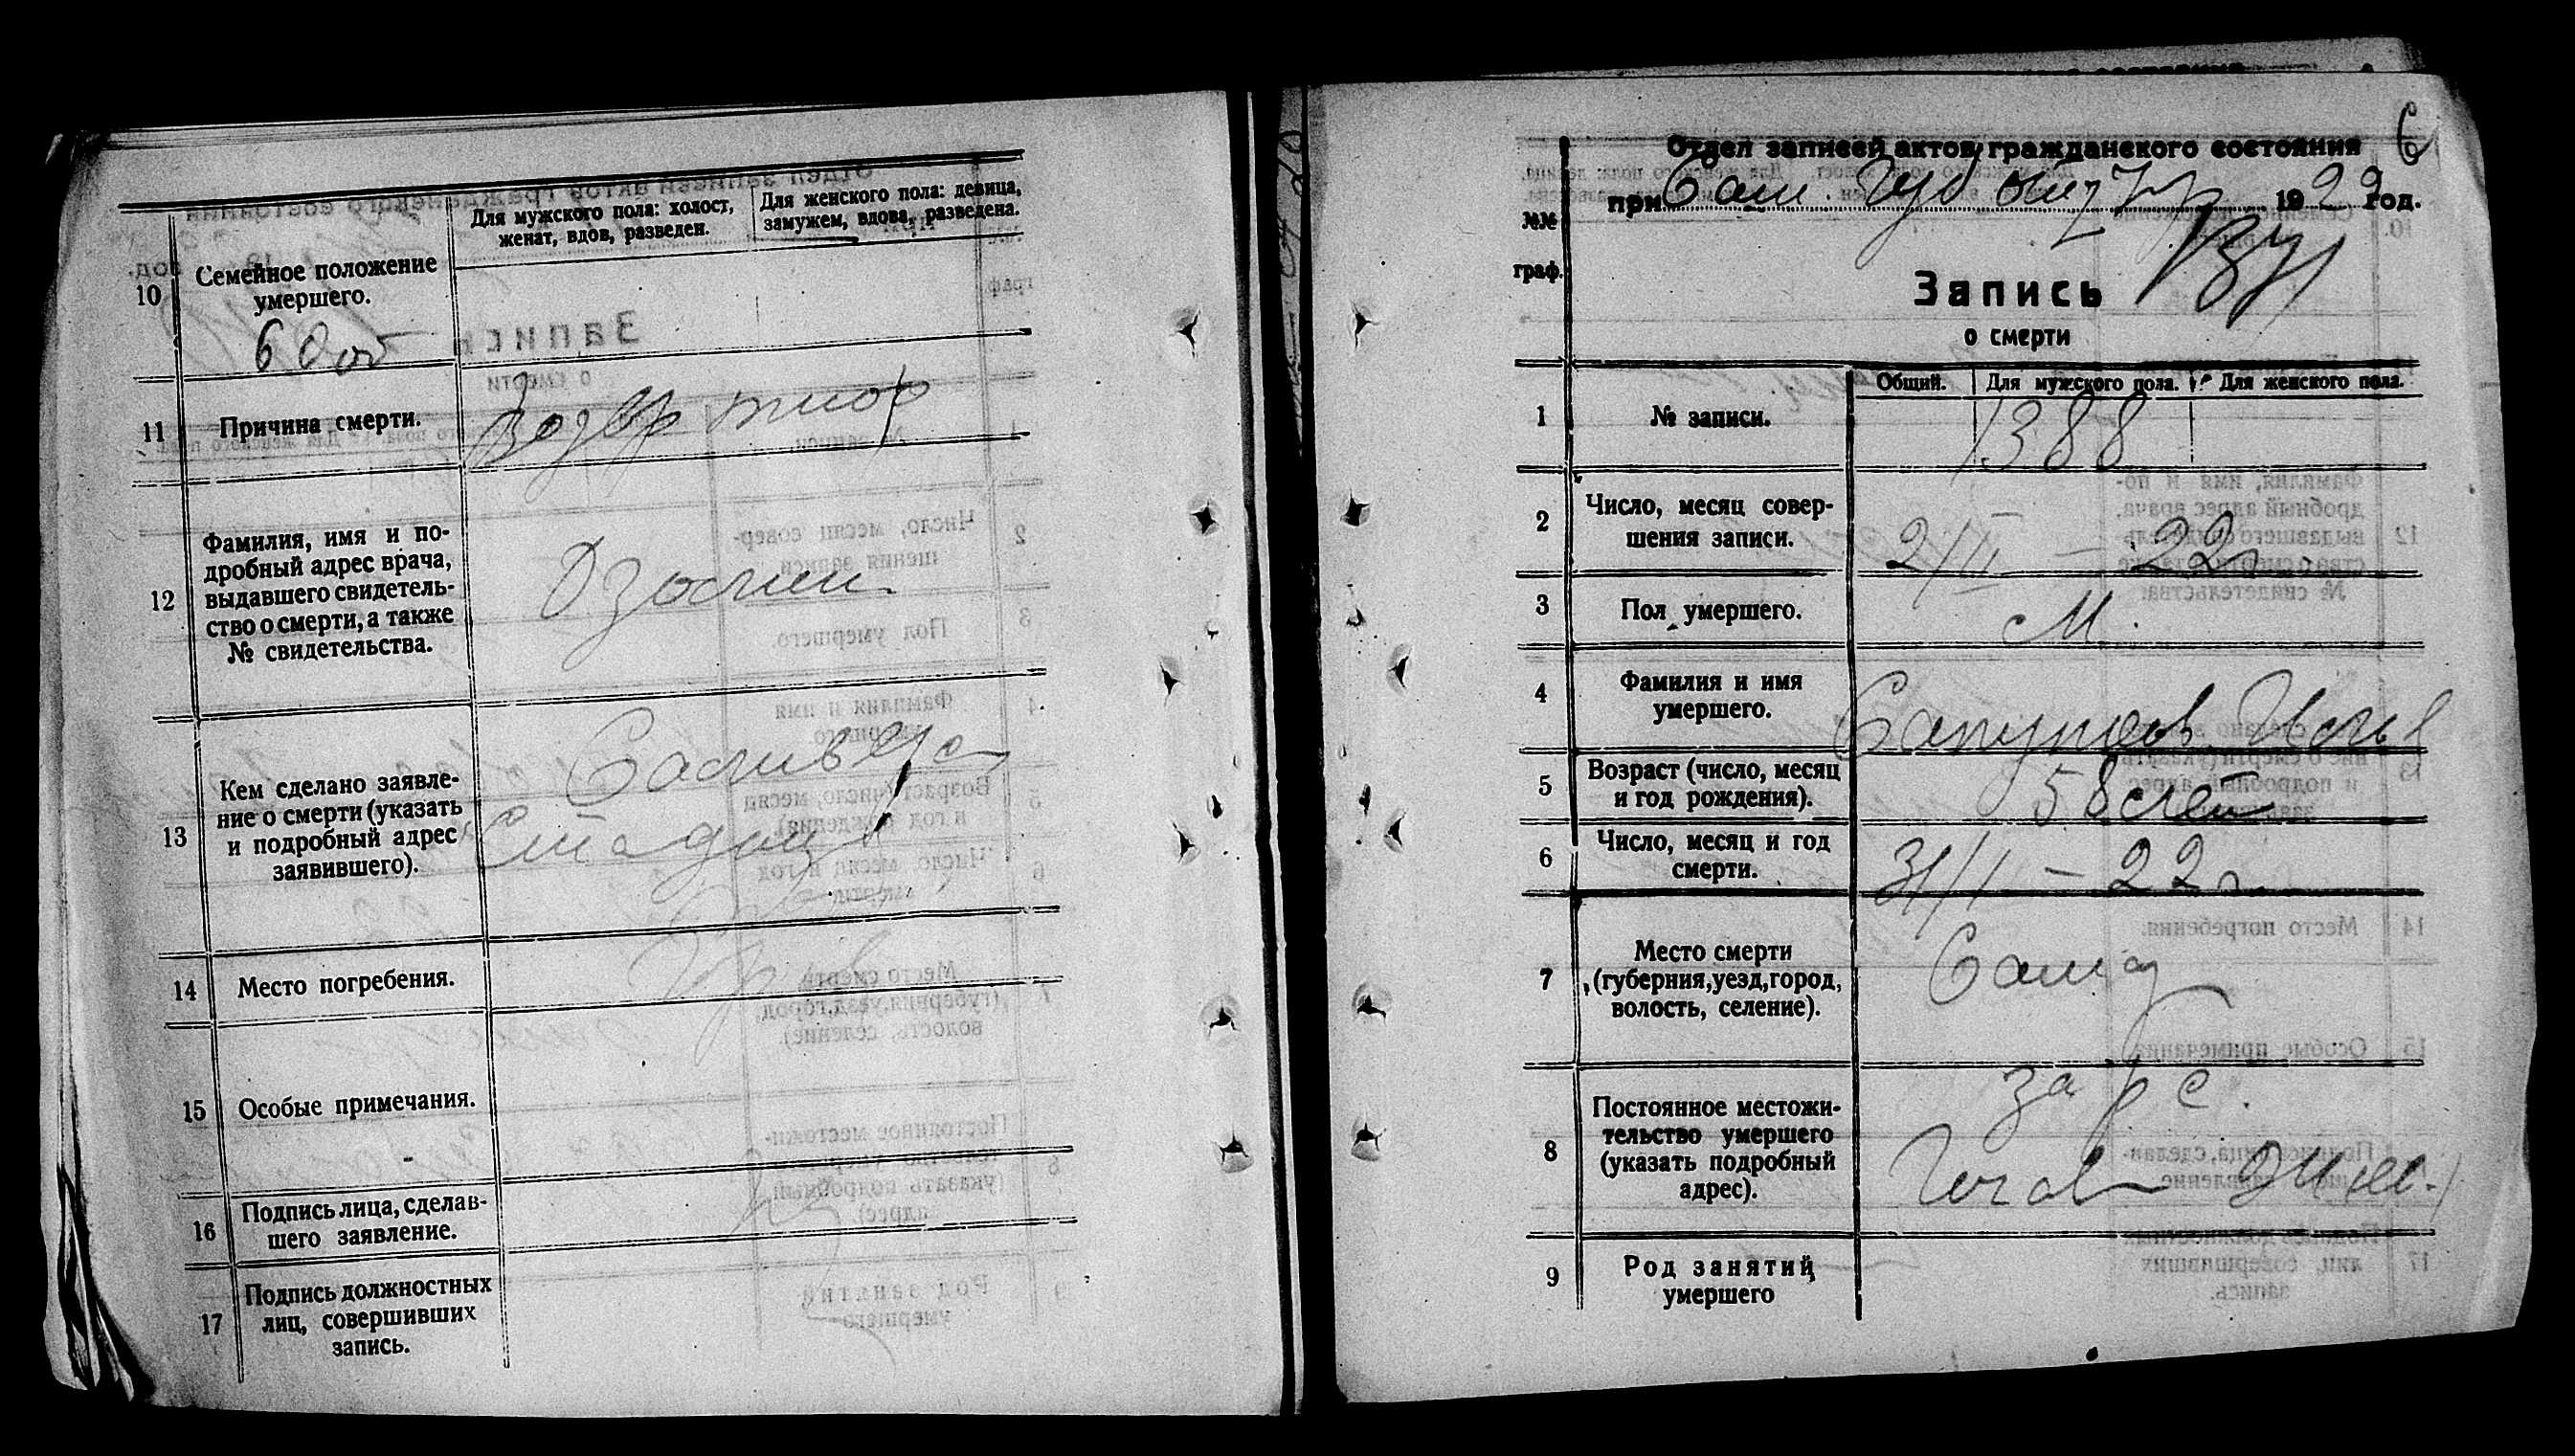 10
Семейное положение
умершего.
Для мужского пола: холост,
женат, вдов, разведен.
Для женского пола: девица,
замужем, вдова, разведена.
11
Причина смерти.
Возвр тиф
12
Фамилия, имя и по-
дробный адрес врача,
выдавшего свидетель-
ство о смерти, а также
№ свидетельства.
13
Кем сделано заявле-
ние о смерти (указать
и подробный адрес
заявившего).
14
Место погребения.
15
Особые примечания.
16
Подпись лица, сделав-
шего заявление.
17
Подпись должностных
лиц, совершивших
запись.
6
Отдел записей актов гражданского состояния
при Сам. Губ 1922 год.
№№
граф.
Запись
о смерти
1
№ записи.
Общий.
Для мужского пола.
Для женского пола.
1388
2
Число, месяц совер-
шения записи.
2/II – 22 г
3
Пол умершего.
М.
4
Фамилия и имя
умершего.
Сапунов
5
Возраст (число, месяц
и год рождения).
58 лет
6
Число, месяц и год
смерти.
31/I – 22 г
7
Место смерти
(губерния, уезд, город,
волость, селение).
8
Постоянное местожи-
тельство умершего
(указать подробный
адрес).
9
Род занятий
умершего